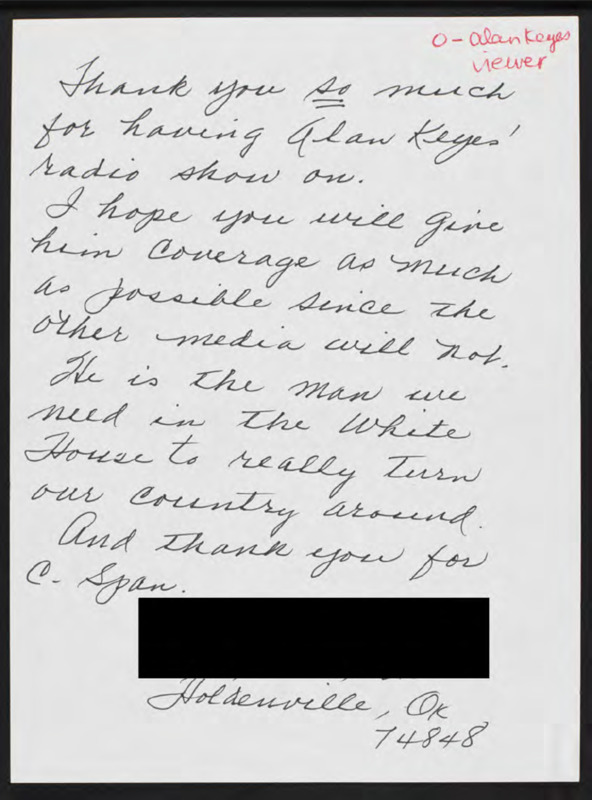 O - alan Keyes
viewer
Thank you so much
for having Alan Keyes'
radio show on.
I hope you will give
him coverage as much
as possible since the
other media will not.
He is the man we
need in the White
House to really turn
our country around.
And thank you for
C. Span.
Holdenville, Ok
74848